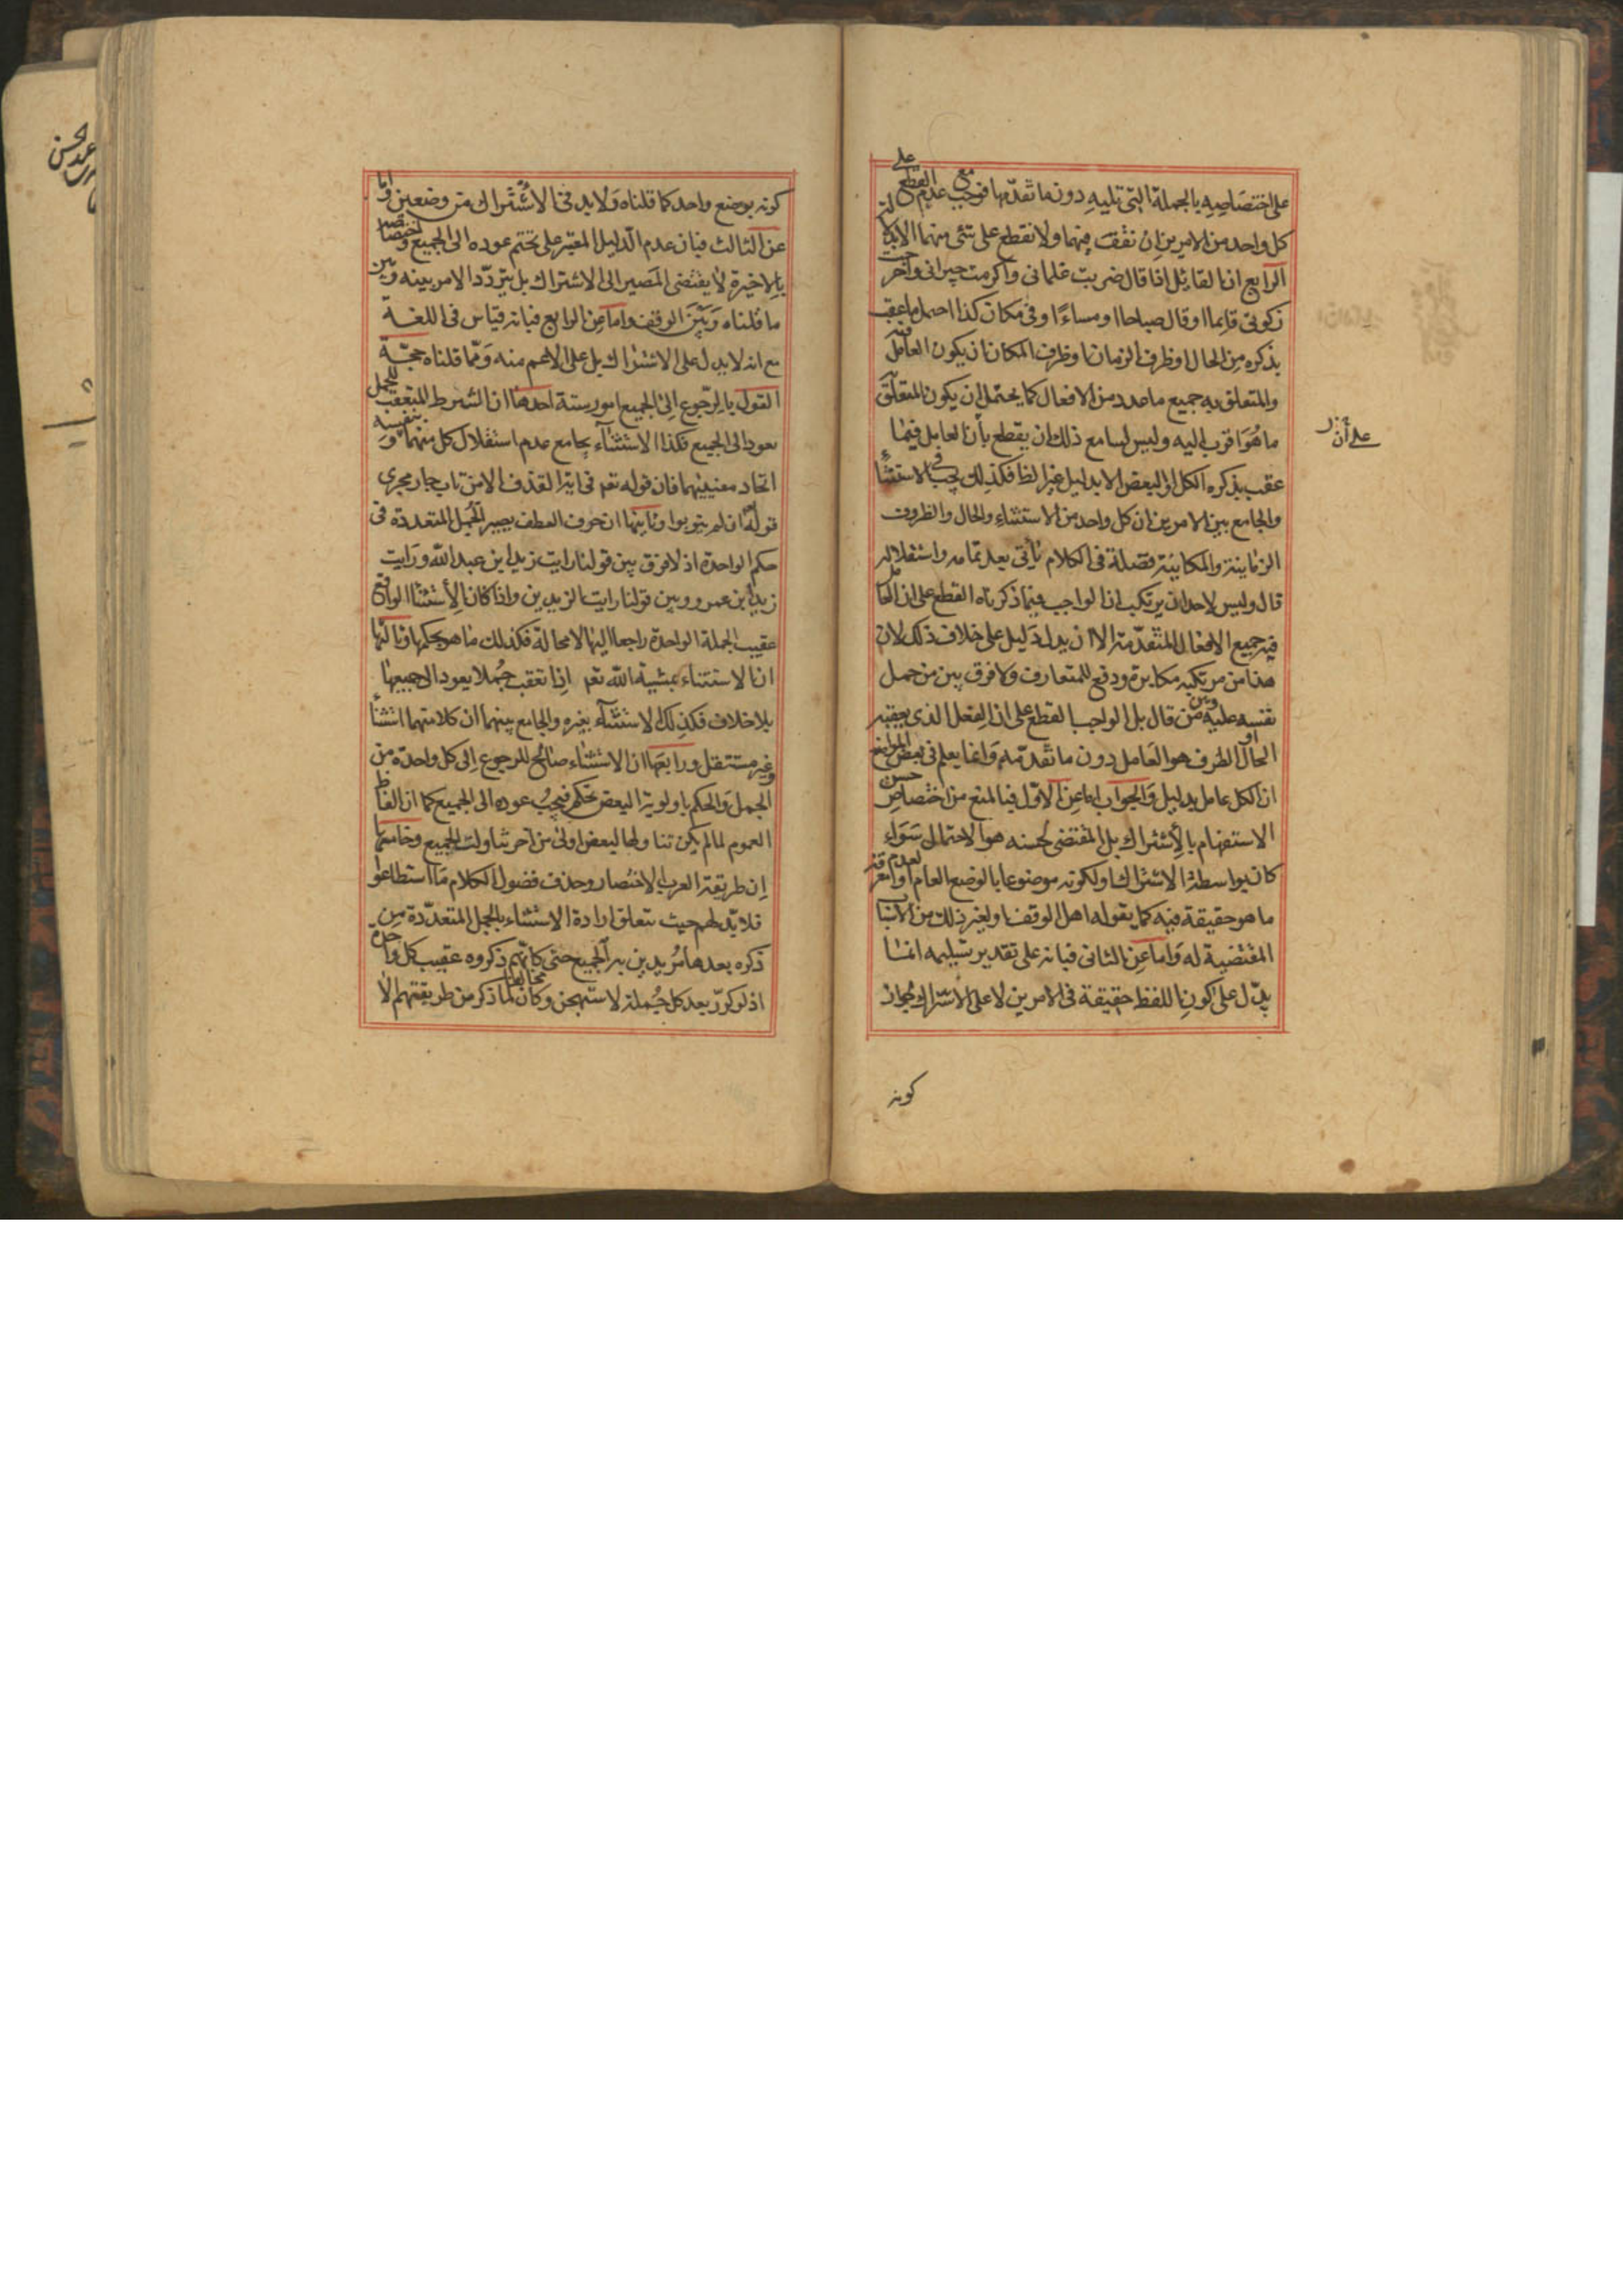 على اختصاصه بالجملة التي تليه دون ما تقدمها فوجب مع عدم القطع على
كل واحد من الامرين ان نقف فيهما ولا نقطع على شئ منهما الا بدلالة
الرابع ان القائل اذا قال ضربت غلماني واكرمت جيراني واخرجت
زكوتي قايما او قال صباحا او مساءً او في مكان كذا احتمل ما عقب
بذكره من الحال او ظرف الزمان او ظرف المكان ان يكون العامل فيه
والمتعلق به جميع ما عدد من الافعال كما يحتمل ان يكون المتعلق به
ما هو اقرب اليه وليس لسامع ذلك ان يقطع بأن العامل فيما
عقب بذكره الكل او البعض الا بدليل غير اللفظ فكذلك يجب في الاستثناء
والجامع بين الامرين ان كل واحد من الاستثناء والحال والظروف
الزمانية والمكانية فضلة في الكلام يأتي بعد تمامه واستقلاله
قال وليس لاحد ان يرتكب ان الواجب فيما ذكرناه القطع على ان العامل
فيه جميع الافعال المتقدمة الا ان يدل دليل على خلاف ذلك لان
هذا من مرتكبه مكابرة ودفع للمتعارف ولا فرق بين من حمل
نفسه عليه وبين من قال بل الواجب القطع على ان الفعل الذي يعقبه
الحال او الظرف هو العامل دون ما تقدمه وانما يعلم في بعض المواضع
ان الكل عامل بدليل والجواب اما عن الاول فبالمنع من اختصاص حسن
الاستفهام بالاشتراك بل المقتضى لحسنه هو الاحتمال سواء
كان بواسطة الاشتراك او لكونه موضوعا بالوضع العام او لعدم معرفة
ما هو حقيقة فيه كما يقوله اهل الوقف او لغير ذلك من الاسباب
المقتضية له واما عن الثاني فبانه على تقدير تسليمه انما
يدل على كون اللفظ حقيقة في الامرين لا على الاشتراك لجواز
كونه
على أن
كونه بوضع واحد كما قلناه ولا بد في الاشتراك من وضعين واما
عن الثالث فبان عدم الدليل المعتبر على تحتم عوده الى الجميع واختصاصه
بالاخيرة لا يقتضي المصير الى الاشتراك بل يتردد الامر بينه وبين
ما قلناه وبين الوقف واما عن الرابع فبانه قياس في اللغة
مع انه لا يدل على الاشتراك بل على الاعم منه ومما قلناه حجة
القول بالرجوع الى الجميع امور ستة احدها ان الشرط المتعقب للجمل
يعود الى الجميع فكذا الاستثناء بجامع عدم استقلال كل منهما بنفسه و
اتحاد معنييهما فان قوله تعم في اية القذف الا من تاب جار مجرى
قوله ان لم يتوبوا وثانيها ان حرف العطف يصير الجمل المتعددة في
حكم الواحدة اذ لا فرق بين قولنا رايت زيد ابن عبد الله ورايت
زيد ابن عمرو وبين قولنا رايت الزيدين واذا كان الاستثناء الواقع
عقيب الجملة الواحدة راجعا اليها لا محالة فكذلك ما هو بحكمها وثالثها
ان الاستثناء بمشية الله تعم اذا تعقب جملا يعود الى جميعها
بلا خلاف فكذلك الاستثناء بغيره والجامع بينهما ان كلا منهما استثناء
وغير مستقل ورابعها ان الاستثناء صالح للرجوع الى كل واحدة من
الجمل والحكم باولوية البعض تحكم فيجب عوده الى الجميع كما ان الفاظ
العموم لما لم يكن تناولها لبعض اولى من آخر تناولت الجميع وخامسها
ان طريقة العرب الاختصار وحذف فضول الكلام ما استطاعوا
فلا بد لهم حيث يتعلق ارادة الاستثناء بالجمل المتعددة من
ذكره بعدها مريدين به الجميع حتى كانهم ذكروه عقيب كل واحدة
اذ لو كرر بعد كل جملة لاستهجن وكان مخالفا لما ذكر من طريقتهم الا